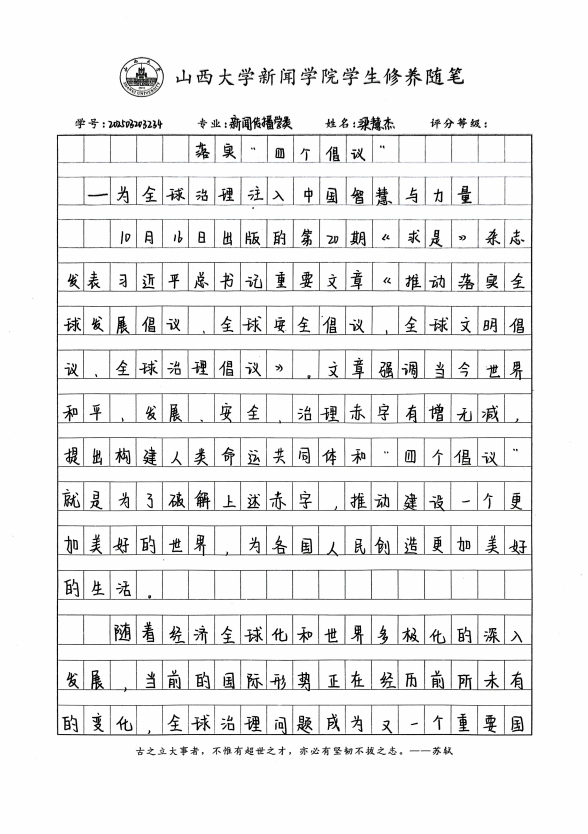 山西大学新闻学院学生修养随笔
学号:202503203234 专业:新闻传播学类 姓名:梁慧杰 评分等级:
落实“四个倡议”
——为全球治理注入中国智慧与力量
10月16日出版的第20期《求是》杂志
发表习近平总书记重要文章《推动落实全
球发展倡议、全球安全倡议、全球文明倡
议、全球治理倡议》。文章强调当今世界
和平、发展、安全、治理赤字有增无减,
提出构建人类命运共同体和“四个倡议”
就是为了破解上述赤字,推动建设一个更
加美好的世界,为各国人民创造更加美好
的生活。
随着经济全球化和世界多极化的深入
发展,当前的国际形势正在经历前所未有
的变化,全球治理问题成为又一个重要国
古之立大事者,不惟有超世之才,亦必有坚韧不拔之志。——苏轼